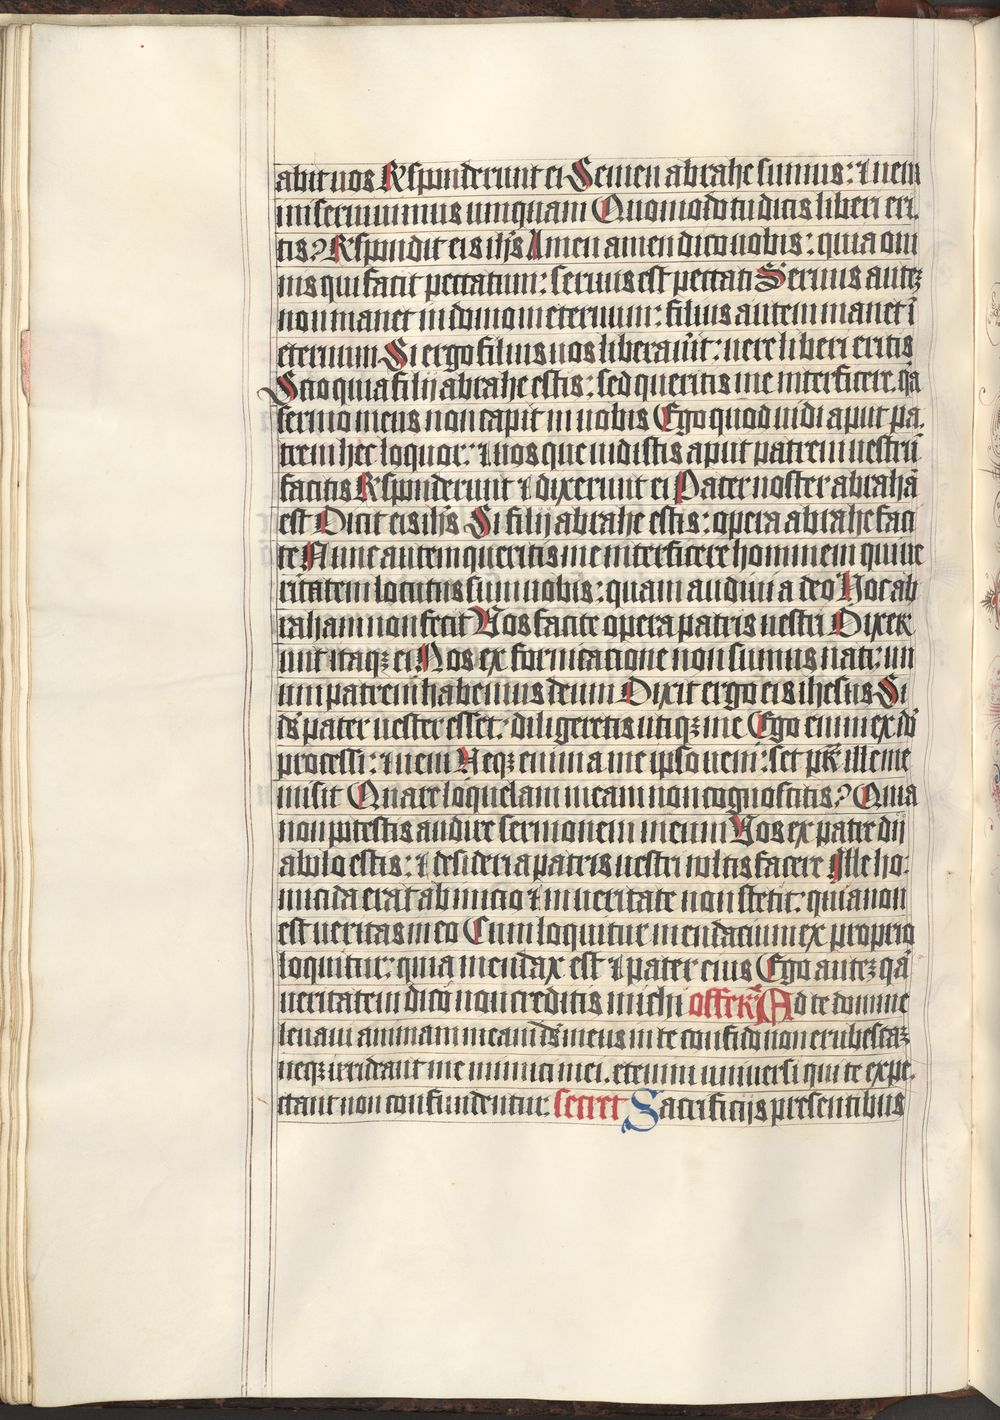 abit uos Rͥsponderunt ei Semen abrahe sumus: ⁊ nem
ini seruiuimus umquam Quomodo tu dicis liberi eri
tis? Rͥspondit eis ih̅s Amen amen dico uobis: quia om
nis qui facit peccatum: seruus est peccati Seruus autēꝫ
non manet in domo in eternum: filius autem manet ī
eternum Si ergo filius uos liberau̓it: uere liberi eritis
Scio quia filij abrahe estis: sed queritis me interficere. qā
sermo meus non capit in uobis Ego quod uidi aput pa
trem hec loquor: ⁊ uos que uidistis aput patrem uestrū
facitis Rͥsponderunt ⁊ dixerunt ei Pater noster abrahā
est Dicit eis ih̅s Si filij abrahe estis: opera abrahe faci
te Nunc autem queritis me interficere hominem qui ue
ritatem locutus sum uobis: quam audiui a deo Hoc ab
raham non fecit Uos facite opera patris uestri Dixer
unt itaqꝫ ei Nos ex fornicatione non sumus nati: un
um patrem habemus deum Dixit ergo eis ihesus Si
ds̄ pater uester esset: diligeretis utiqꝫ me Ego enim ex dō
processi: ⁊ ueni Neqꝫ enim a me ipso ueni: set pr̄ ille me
misit Quare loquelam meam non cognoscitis? Quia
non potestis audire sermonem meum Uos ex patre dij
abolo estis: ⁊ desideria patris uestri wltis facere Ille ho
micida erat ab inicio ⁊ in ueritate non stetit: quia non
est ueritas in eo Cum loquitur mendacium ex proprio
loquitur: quia mendax est ⁊ pater eius Ego autēꝫ qā
ueritatem dico non creditis michi offer̄ Ad te domine
leuaui animam meam ds̄ meus in te confido non erubescaꝫ
neqꝫ irrideant me inimici mei. etenim uniuersi qui te expe
ctant non confundentur: secret Sacrificijs presentibus